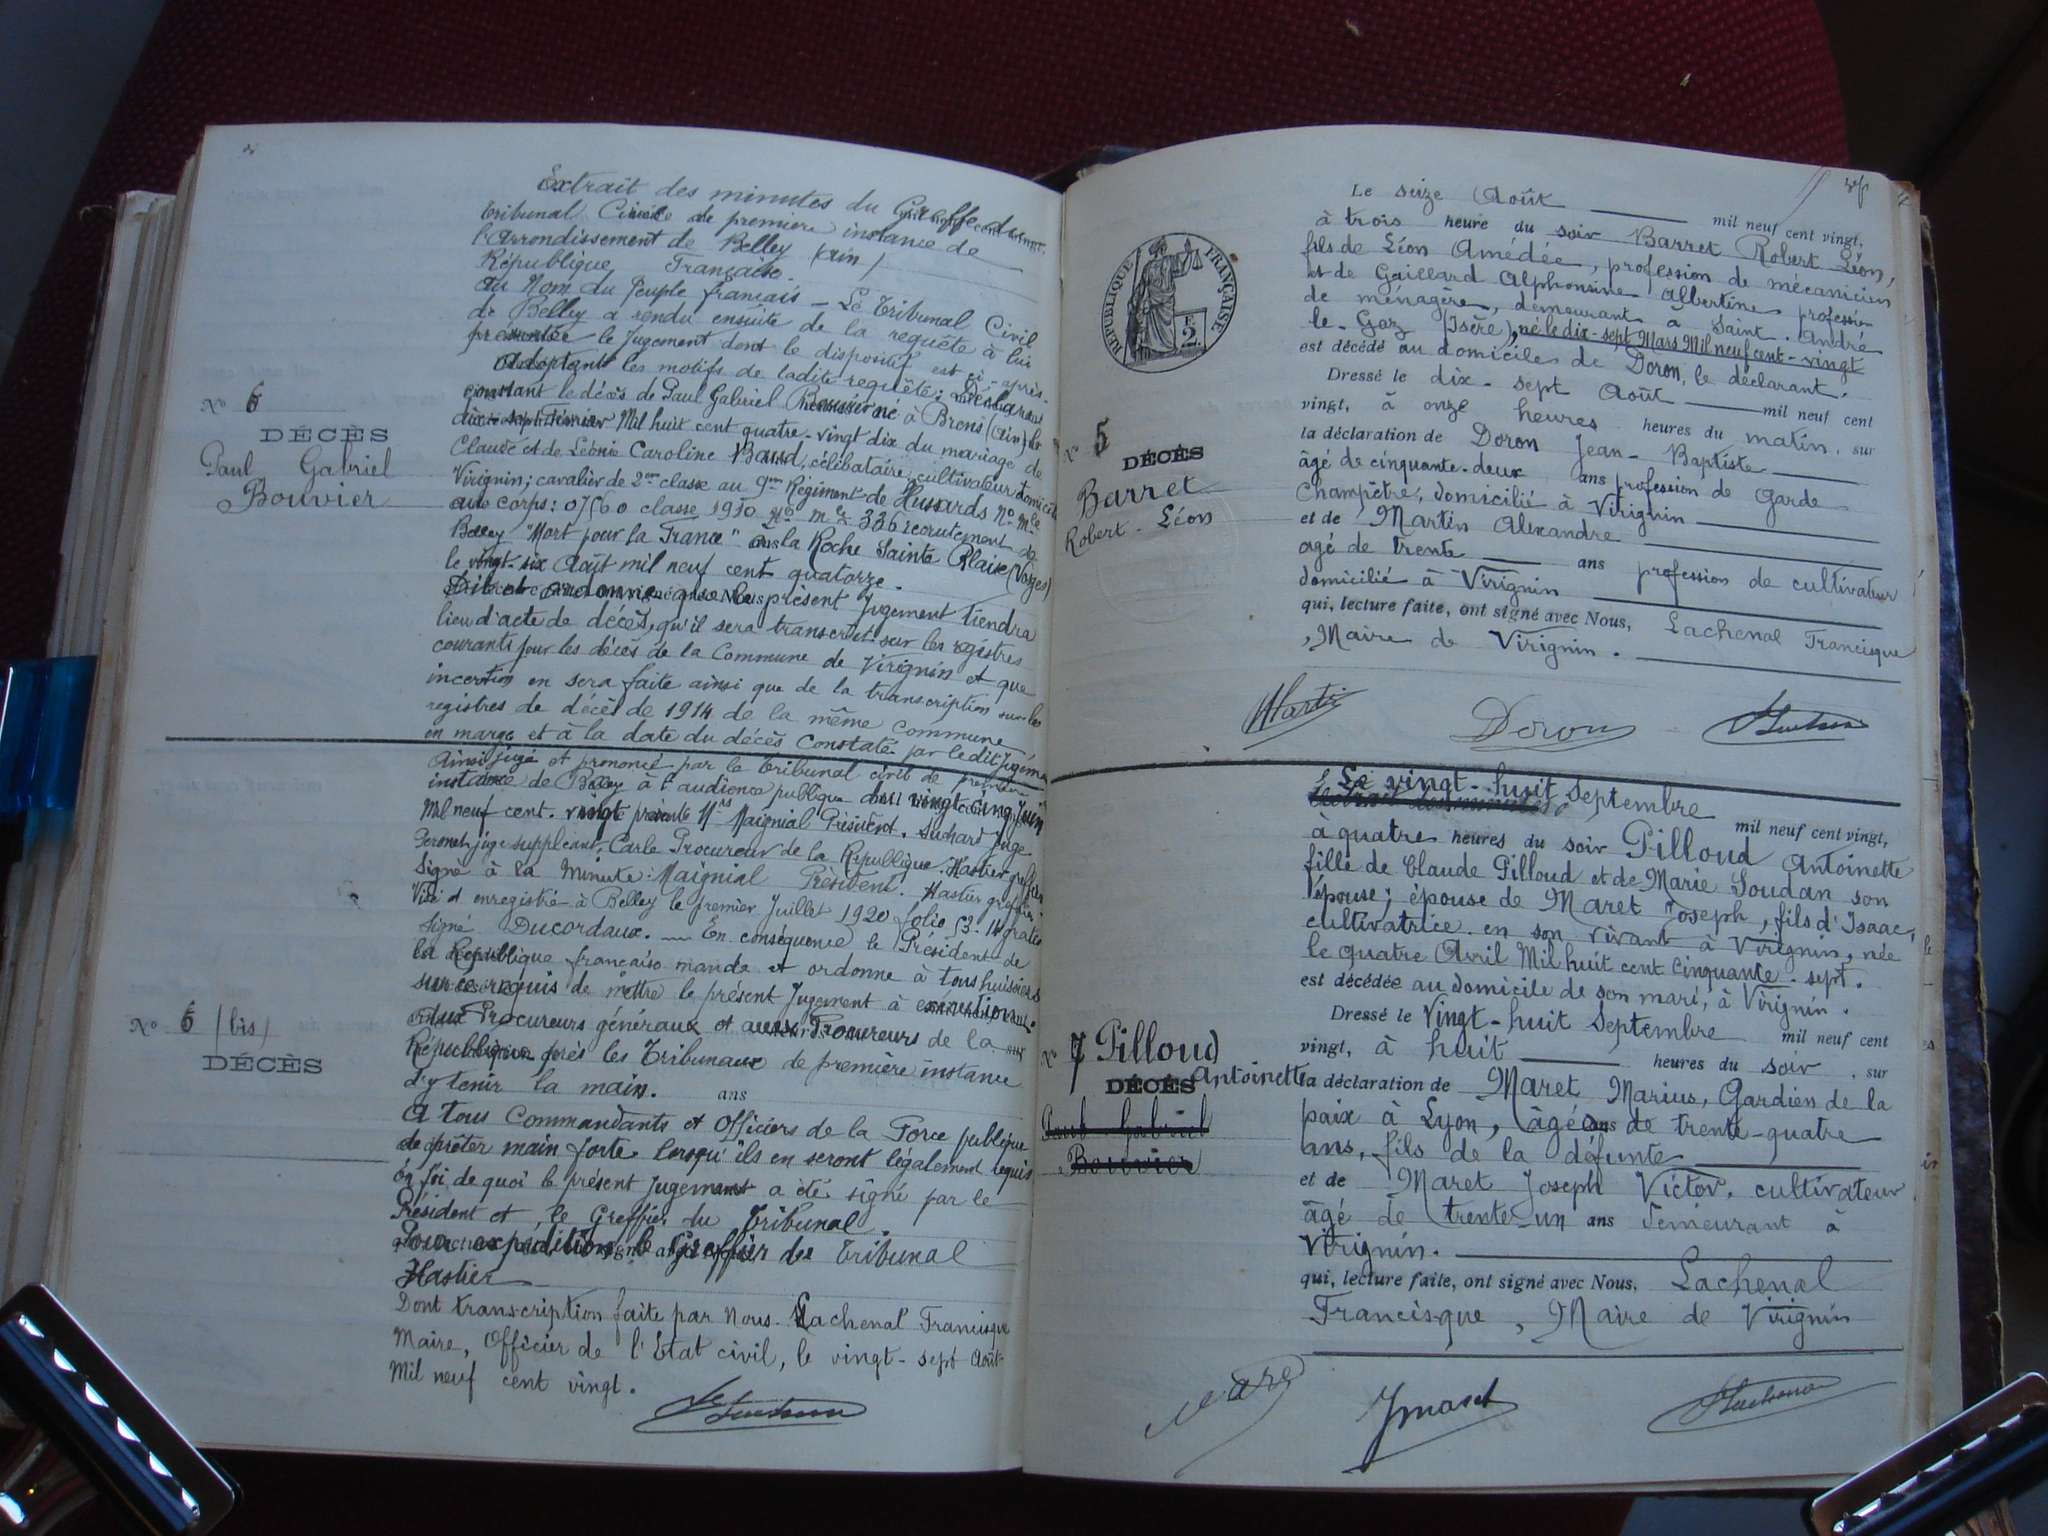 Extrait des minutes du Greffe du
Tribunal Civil de première instance de
l'Arrondissement de Belley (Ain)
République Française.
Au Nom du Peuple français - Le Tribunal Civil
de Belley a rendu ensuite de la requête à lui
présentée le Jugement dont le dispositif est ci-après.
Adoptant les motifs de ladite requête; Déclarons
constant le décès de Paul Gabriel Bouvier né à Brens (Ain) le
dix-sept Février Mil huit cent quatre-vingt dix du mariage de
Claude et de Léonie Caroline Baud, célibataire, cultivateur domicilié
Virignin; cavalier de 2me classe au 9me Régiment de Hussards No Mle
au corps: 0756 classe 1910 No mle 336 recrutement de
Belley "Mort pour la France" à la Roche Sainte Blaise (Vosges)
le vingt-six Août mil neuf cent quatorze.
Dit et ordonne que le présent Jugement tiendra
lieu d'acte de décès, qu'il sera transcrit sur les régistres
courants pour les décès de la Commune de Virignin et que
incertion en sera faite ainsi que de la transcription sur les
registres de décès de 1914 de la même commune
en marge et à la date du décès constaté par ledit Jugement
No 6
DÉCÈS
Paul Gabriel
Bouvier
Ainsi jugé et prononcé par le tribunal civil de première
instance de Belley à l'audience publique du vingt cinq Juin
Mil neuf cent vingt présents Mrs Maignial Président, Suchard Juge
Peronet juge suppléant, Carle Procureur de la République. Hastier greffier
Signé à la Minute: Maignial Président. Hastier greffier.
Visé et enregistré à Belley le premier Juillet 1920 folio 53. 14 gratis
Signé Ducordaux. — En conséquence le Président de
la République française mande et ordonne à tous huissiers
sur ce requis de mettre le présent Jugement à exécution.
Aux Procureurs généraux et aux Procureurs de la
République près les Tribunaux de première instance
d'y tenir la main. ans
A tous Commandants et Officiers de la Force publique
de prêter main forte lorsqu'ils en seront légalement requis
En foi de quoi le présent Jugement a été signé par le
Président et le Greffier du Tribunal.
Pour expédition le Greffier du Tribunal
Hastier
Dont transcription faite par Nous Lachenal Francisque
Maire, Officier de l'Etat civil, le vingt-sept Août
Mil neuf cent vingt.
No 6 (bis)
DÉCÈS
RÉPUBLIQUE FRANÇAISE
2
No 5
DÉCÈS
Barret
Robert-Léon
Le seize Août mil neuf cent vingt,
à trois heure du soir Barret Robert Léon,
fils de Léon Amédée, profession de mécanicien
et de Gaillard Alphonsine Albertine profession
de ménagère, demeurant à Saint-André
le-Gaz (Isère), né le dix-sept Mars Mil neuf cent-vingt
est décédé au domicile de Doron, le déclarant.
Dressé le dix-sept Août mil neuf cent
vingt, à onze heures heures du matin, sur
la déclaration de Doron Jean-Baptiste
âgé de cinquante-deux ans profession de Garde
Champêtre, domicilié à Virignin
et de Martin Alexandre
agé de trente ans profession de cultivateur
domicilié à Virignin
qui, lecture faite, ont signé avec Nous, Lachenal Francisque
, Maire de Virignin.
Marti Doron
Le vingt-huit Septembre
mil neuf cent vingt,
à quatre heures du soir Pilloud Antoinette
fille de Claude Pilloud et de Marie Soudan son
épouse; épouse de Maret Joseph, fils d'Isaac,
cultivatrice en son vivant à Virignin, née
le quatre Avril Mil huit cent cinquante-sept.
est décédée au domicile de son mari, à Virignin.
Dressé le Vingt-huit Septembre mil neuf cent
vingt, à huit heures du soir, sur
la déclaration de Maret Marius, Gardien de la
paix à Lyon, âgé de trente-quatre
ans, fils de la défunte
et de Maret Joseph Victor, cultivateur
âgé de trente-un ans demeurant à
Virignin.
qui, lecture faite, ont signé avec Nous, Lachenal
Francisque, Maire de Virignin
No 7 Pilloud
DÉCÈS Antoinette
Paul Gabriel
Bouvier
Maret Jmaret